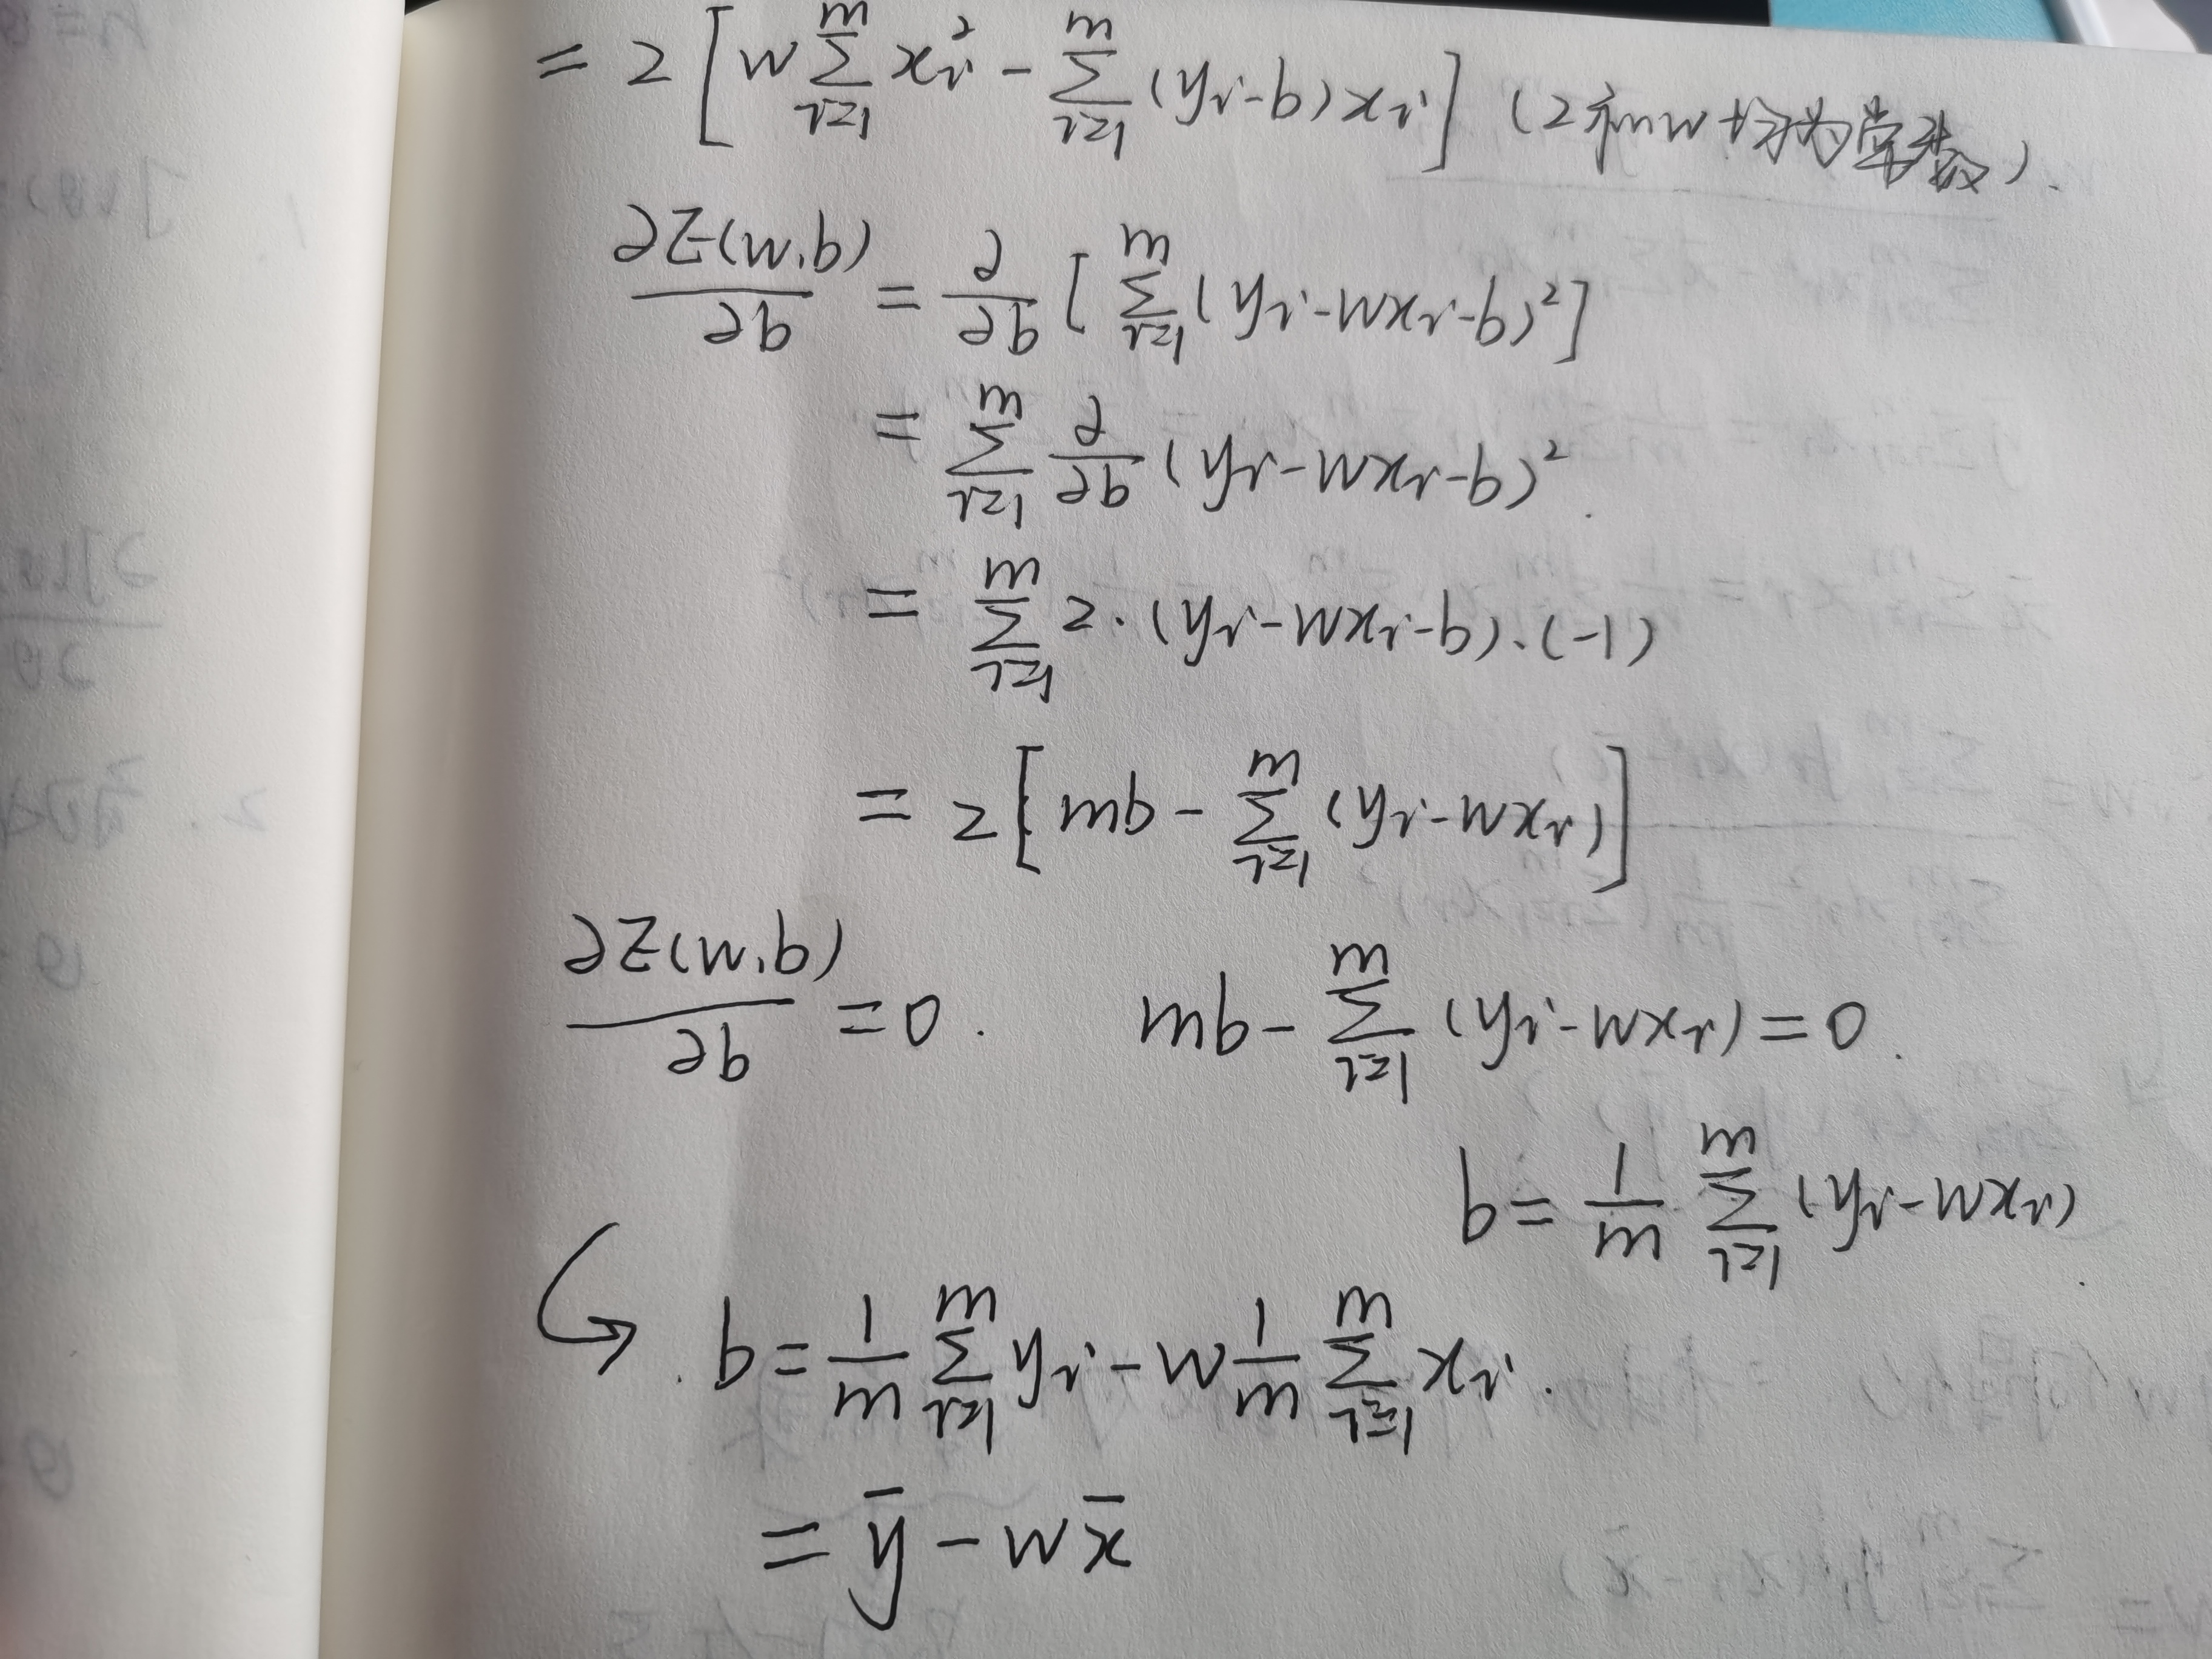 = 2 [ w∑_{i=1}^{m} x_i² − ∑_{i=1}^{m} (y_i−b)x_i ] (2和w均为常数).
∂E(w,b)/∂b = ∂/∂b [ ∑_{i=1}^{m} (y_i−wx_i−b)² ]
= ∑_{i=1}^{m} ∂/∂b (y_i−wx_i−b)².
= ∑_{i=1}^{m} 2·(y_i−wx_i−b)·(−1)
= 2[ mb − ∑_{i=1}^{m} (y_i−wx_i) ]
∂E(w,b)/∂b = 0. mb − ∑_{i=1}^{m} (y_i−wx_i) = 0.
b = 1/m ∑_{i=1}^{m} (y_i−wx_i)
b = 1/m ∑_{i=1}^{m} y_i − w 1/m ∑_{i=1}^{m} x_i.
= ȳ − wx̄